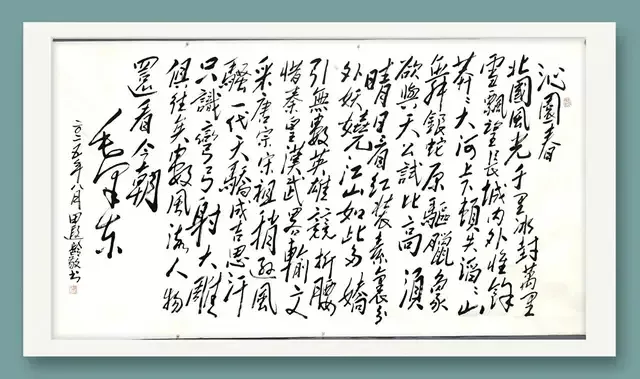 沁園春
北國風光千里冰封萬里
雪飄望長城内外惟餘
莽〻大河上下頓失滔〻山
舞銀蛇原驅臘象
欲與天公試比高須
晴日看红装素裹分
外妖嬈江山如此多嬌
引無數英雄競折腰
惜秦皇漢武畧輸文
采唐宗宋祖稍遜風
騷一代天驕成吉思汗
只識彎弓射大雕
俱往矣數風流人物
還看今朝
毛泽东
二〇二五年八月田